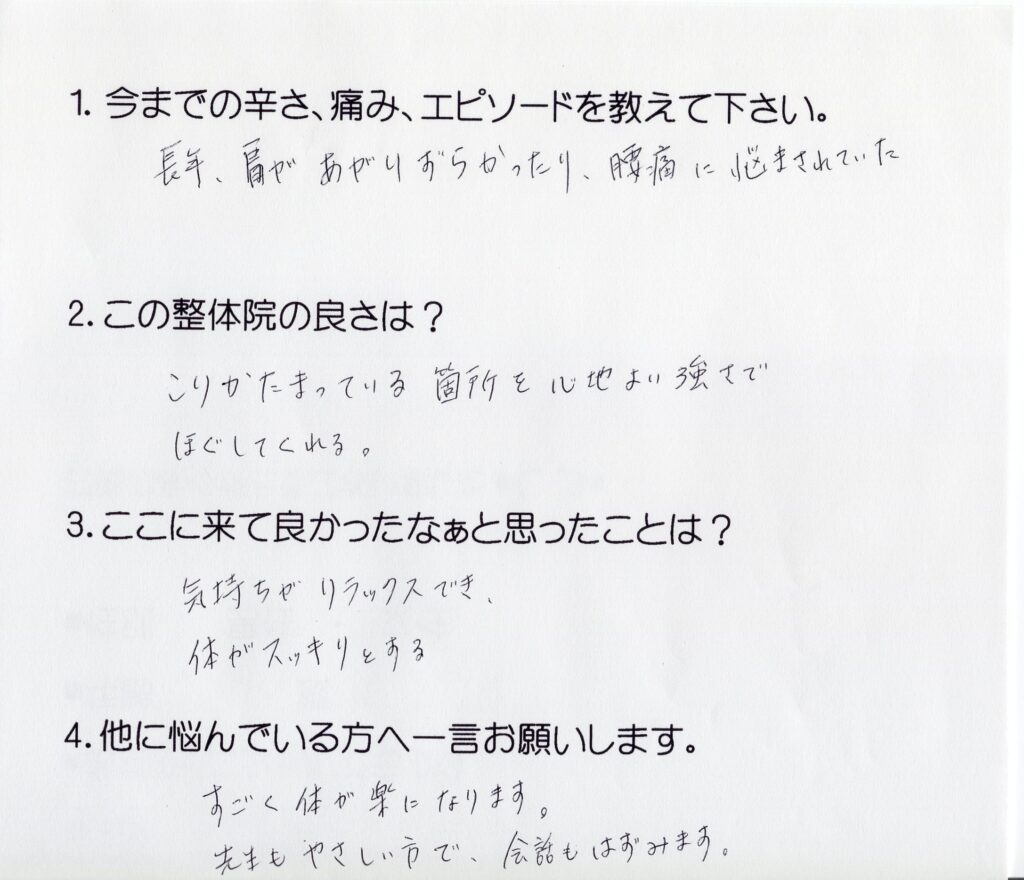 1. 今までの辛さ、痛み、エピソードを教えて下さい。
長年、肩が あがりずらかったり、腰痛に悩まされていた
2. この整体院の良さは？
こりかたまっている 箇所を 心地よい強さで
ほぐしてくれる。
3. ここに来て良かったなぁと思ったことは？
気持ちが リラックスでき、
体がスッキリとする
4. 他に悩んでいる方へ一言お願いします。
すごく体が楽になります。
先生もやさしい方で、会話もはずみます。